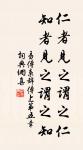 仁者見之謂之仁
知者見之謂之知
易傳系辭傳上第五章
詞典網